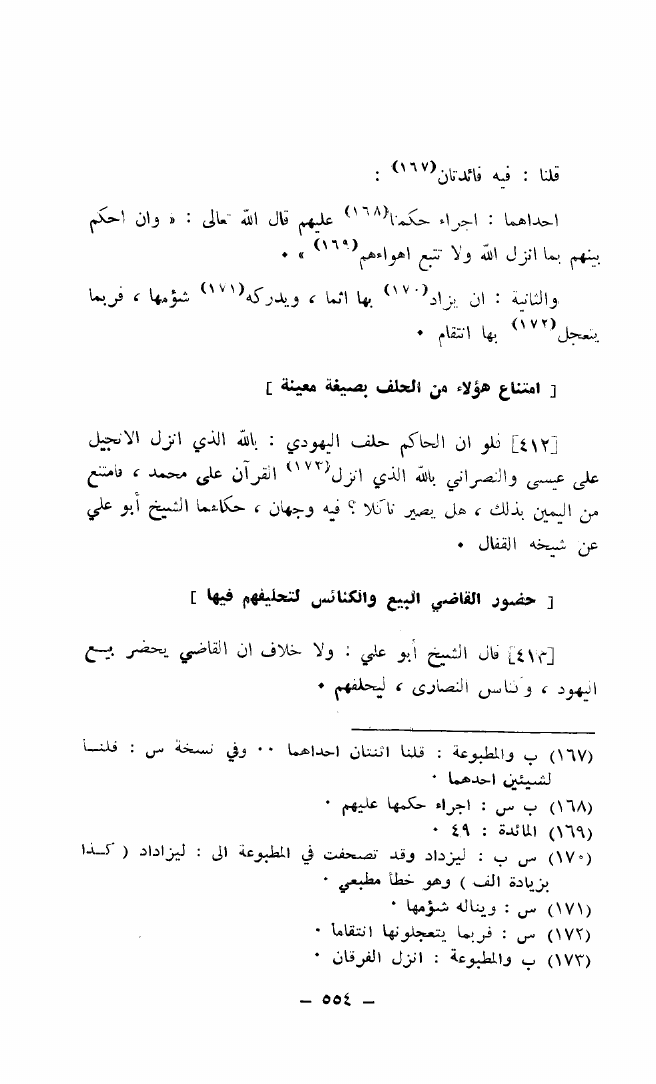 قلنا : فيه فائدتان(١٦٧) :
احداهما : اجراء حكمنا(١٦٨) عليهم قال الله تعالى : « وان احكم
بينهم بما انزل الله ولا تتبع اهواءهم(١٦٩) » ٠
والثانية : ان يزاد(١٧٠) بها اثما ، ويدركه(١٧١) شؤمها ، فربما
يتعجل(١٧٢) بها انتقام ٠
[ امتناع هؤلاء من الحلف بصيغة معينة ]
[٤١٢] فلو ان الحاكم حلف اليهودي : بالله الذي انزل الانجيل
على عيسى والنصراني بالله الذي انزل(١٧٣) القرآن على محمد ، فامتنع
من اليمين بذلك ، هل يصير ناكلا ؟ فيه وجهان ، حكاهما الشيخ أبو علي
عن شيخه القفال ٠
[ حضور القاضي البيع والكنائس لتحليفهم فيها ]
[٤١٣] قال الشيخ أبو علي : ولا خلاف ان القاضي يحضر بيع
اليهود ، وكنائس النصارى ، ليحلفهم ٠
(١٦٧) ب والمطبوعة : قلنا اثنتان احداهما ٠٠ وفي نسخة س : قلنا
لشيئين احدهما ٠
(١٦٨) ب س : اجراء حكمها عليهم ٠
(١٦٩) المائدة : ٤٩ ٠
(١٧٠) س ب : ليزداد وقد تصحفت في المطبوعة الى : ليزاداد ( كذا
بزيادة الف ) وهو خطأ مطبعي ٠
(١٧١) س : ويناله شؤمها ٠
(١٧٢) س : فربما يتعجلونها انتقاما ٠
(١٧٣) ب والمطبوعة : انزل الفرقان ٠
– ٥٥٤ –